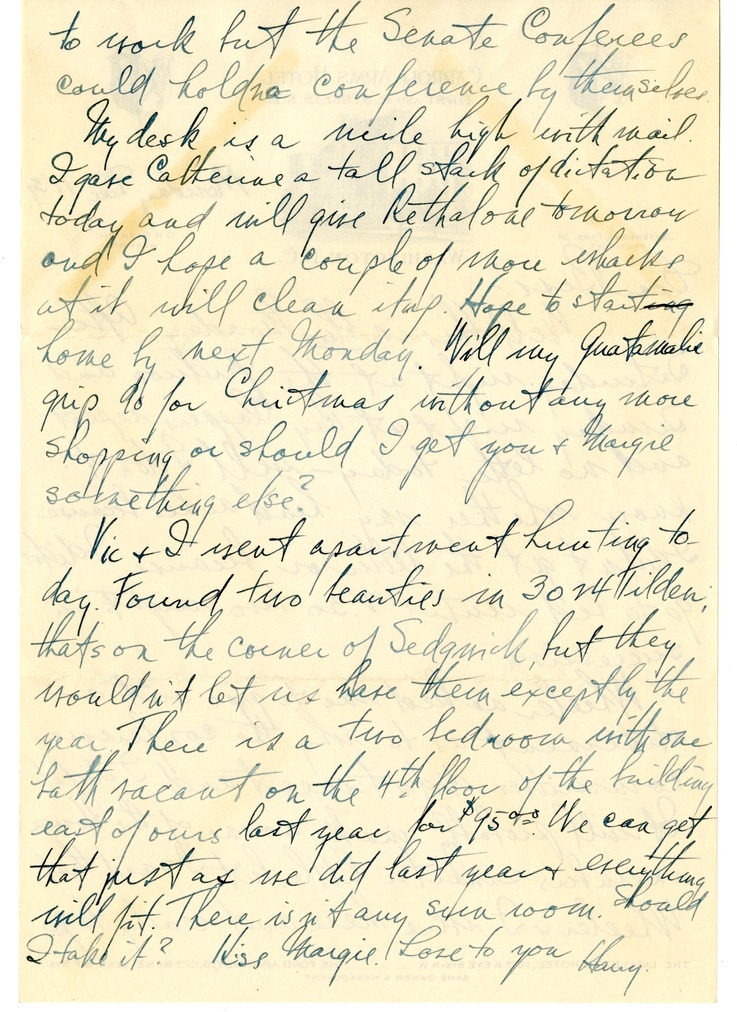 to work but the Senate Conferees
could hold no conference by themselves.
My desk is a mile high with mail.
I gave Catherine a tall stack of dictation
today and will give Reathal one tomorrow
and I hope a couple of more whacks
at it will clean it up. Hope to start
home by next Monday. Will my Guatamalie
grip do for Christmas without any more
shopping or should I get you & Margie
something else?
Vic & I went apartment hunting to-
day. Found two beauties in 3024 Tilden,
thats on the corner of Sedgwick, but they
wouldn't let us have them except by the
year. There is a two bedroom with one
bath vacant on the 4th floor of the building
east of ours last year for $95.00. We can get
that just as we did last year & everything
will fit. There isn't any sun room. Should
I take it? Kiss Margie. Love to you Harry.